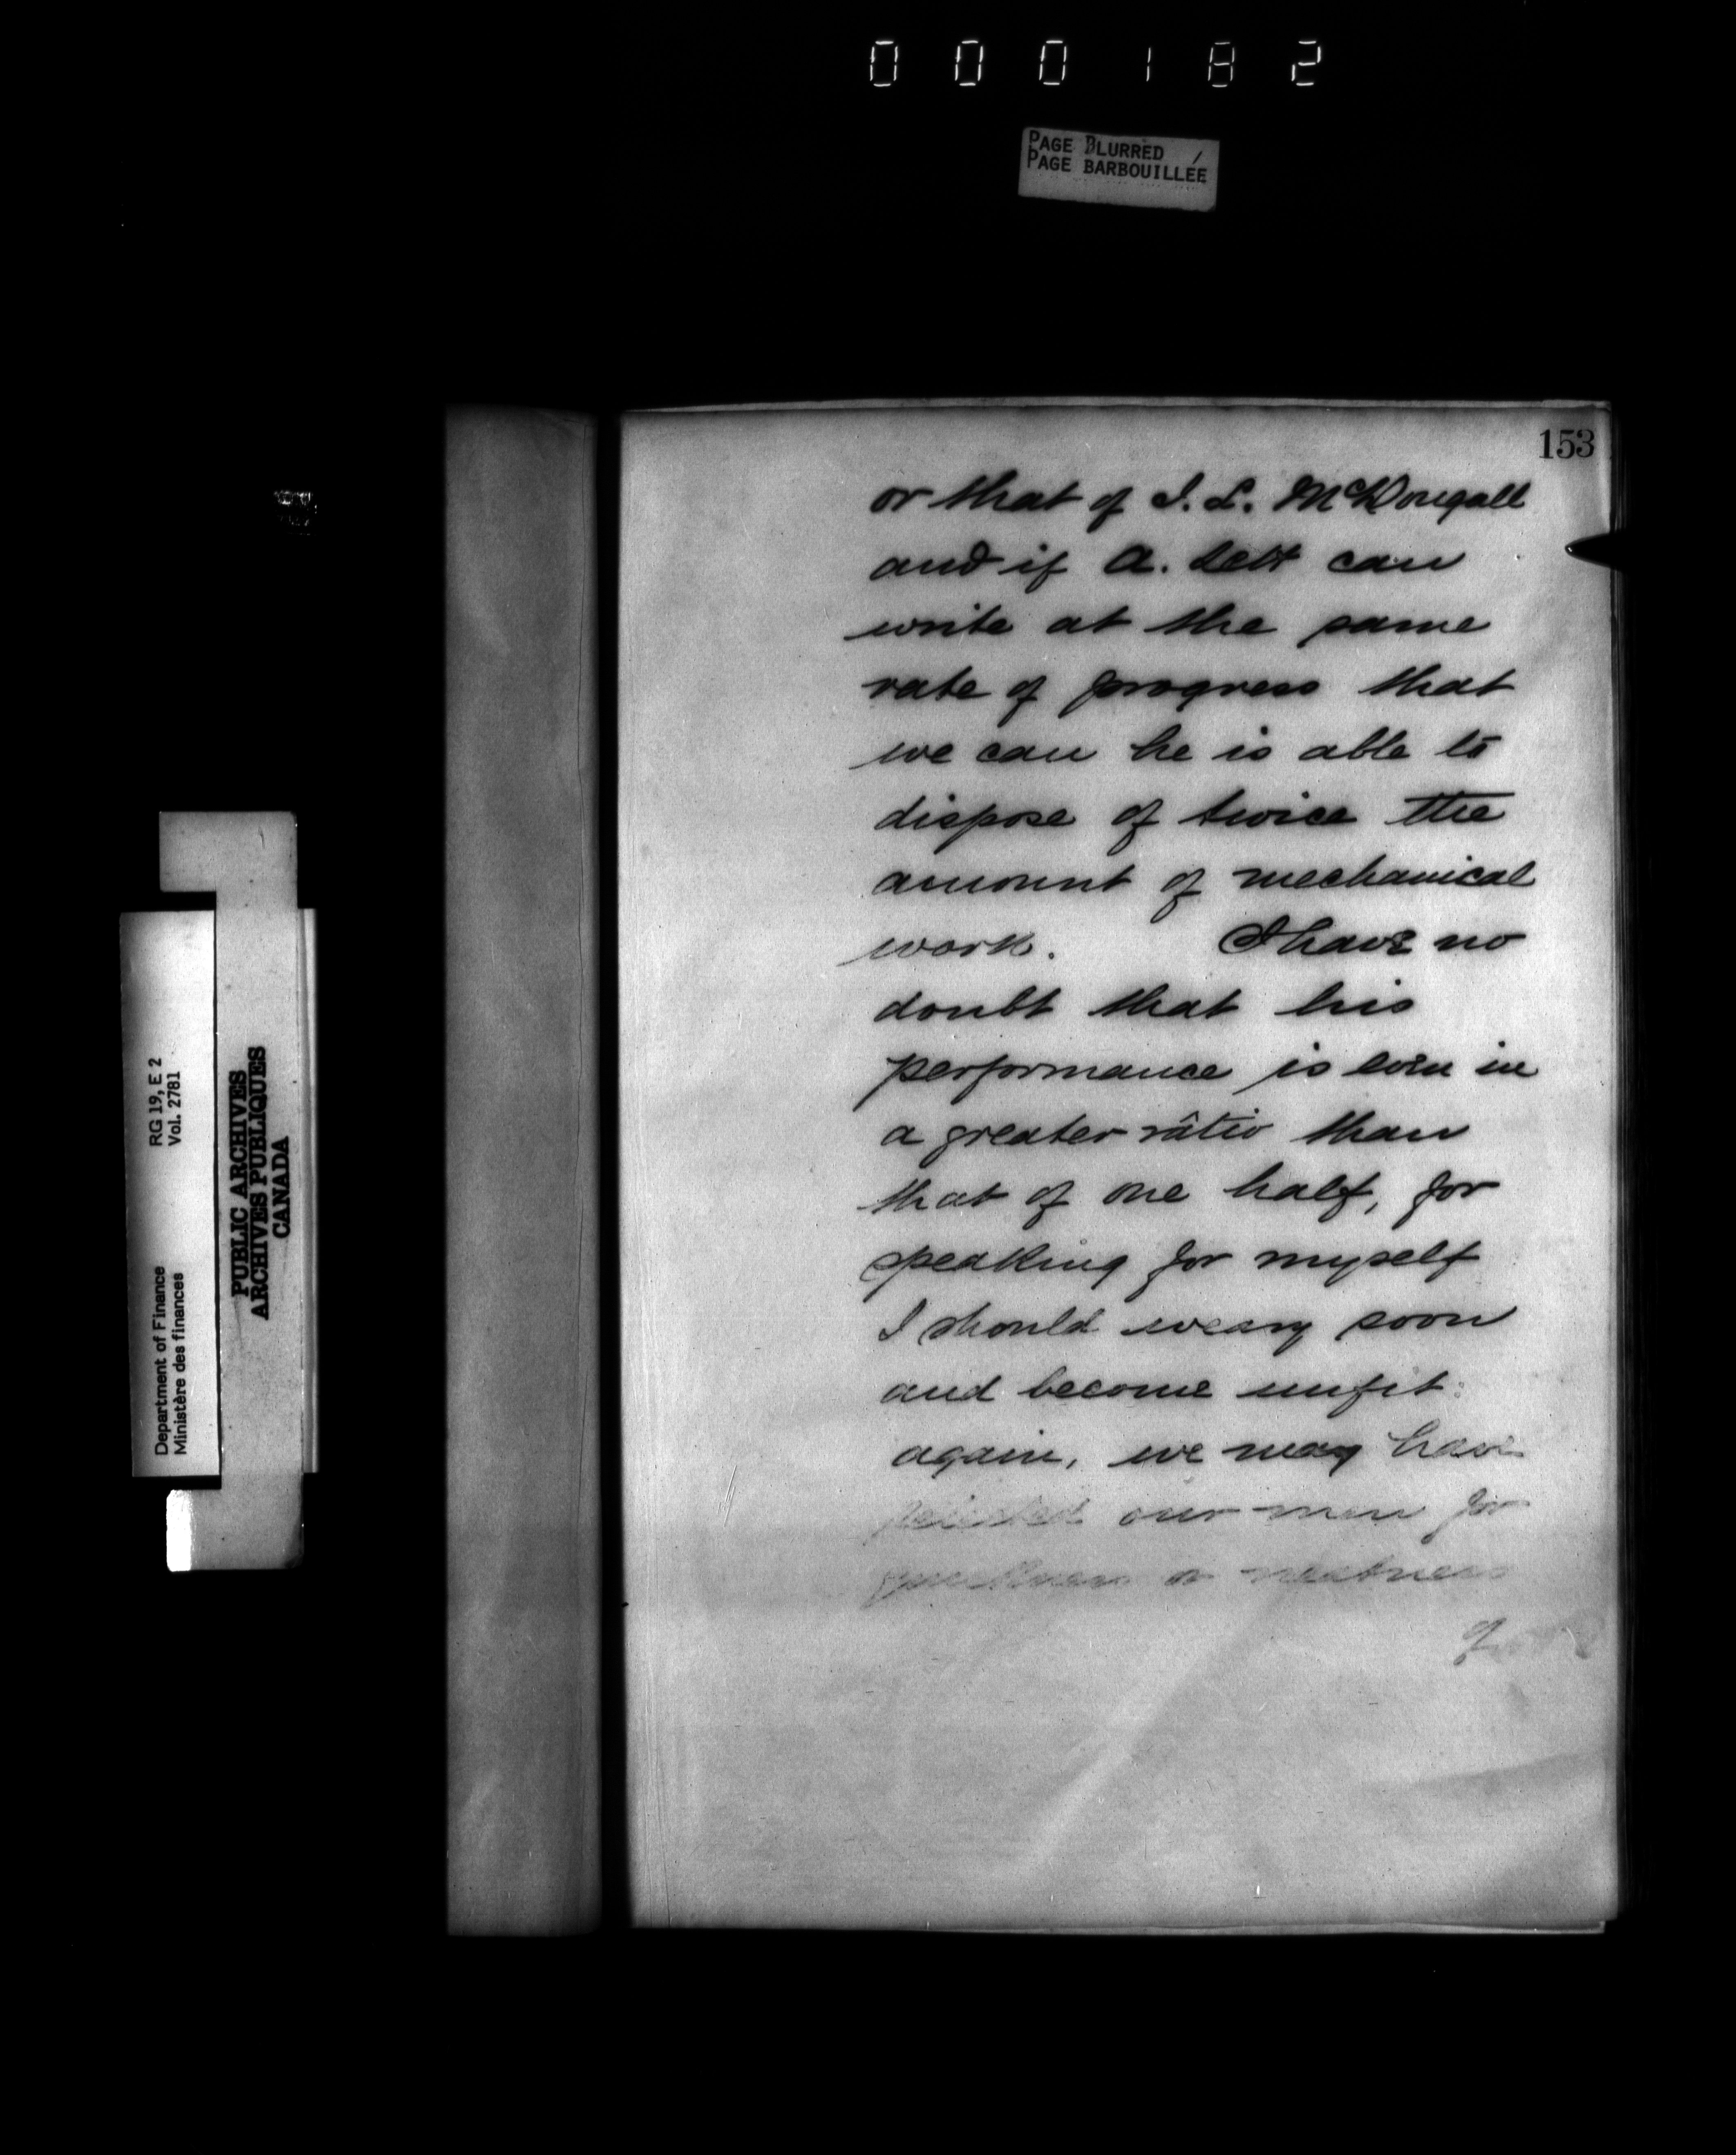 000182
PAGE BLURRED
PAGE BARBOUILLÉE
153
or that of J. L. McDougall
and if A. Selt can
write at the same
rate of progress that
we can he is able to
dispose of twice the
amount of mechanical
work. I have no
doubt that his
performance is even in
a greater ratio than
that of one half, for
speaking for myself
I should weary soon
and become unfit:
again, we may have
our men for
or neatness
of
RG 19, E 2
Vol. 2781
Department of Finance
Ministère des finances
PUBLIC ARCHIVES
ARCHIVES PUBLIQUES
CANADA